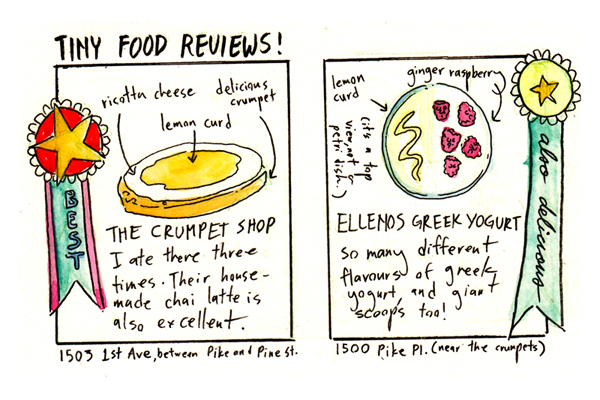 TINY FOOD REVIEWS!
ricotta cheese
delicious
crumpet
lemon curd
BEST
THE CRUMPET SHOP
I ate there three
times. Their house-
made chai latte is
also excellent.
1503 1st Ave, between Pike and Pine St.
lemon
curd
ginger raspberry
(it's a top
view, not a
petri dish.)
also delicious
ELLENOS GREEK YOGURT
so many different
flavours of greek
yogurt, and giant
scoops too!
1500 Pike Pl. (near the crumpets)